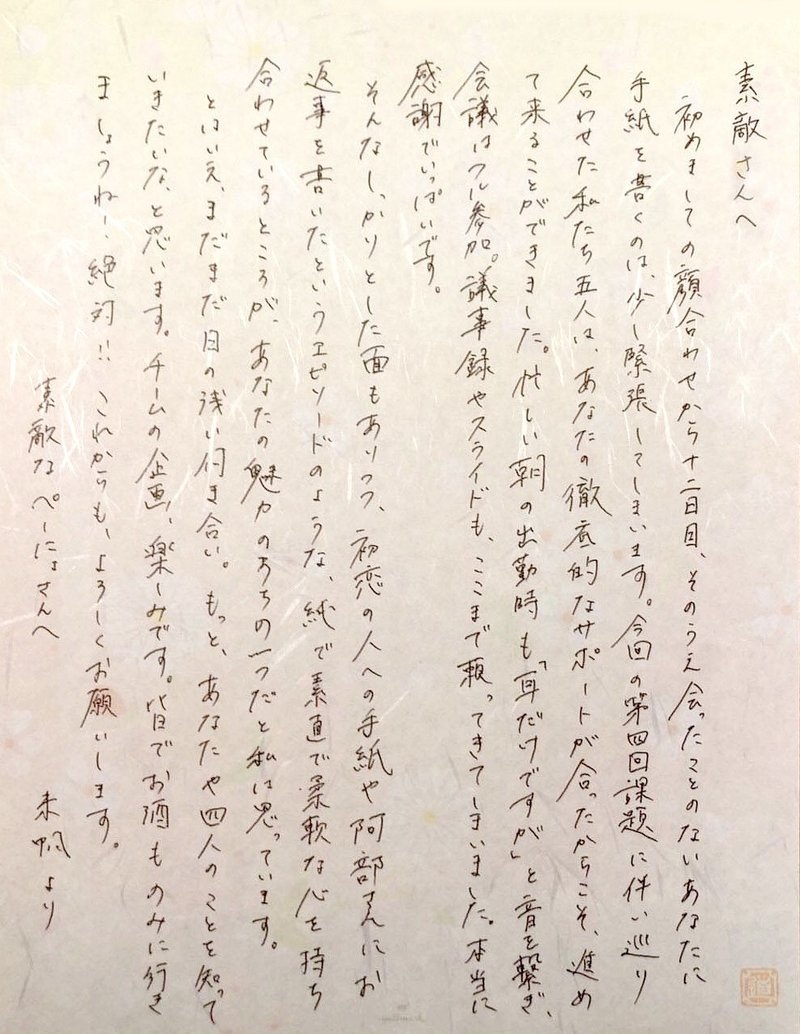 素敵さんへ
初めましての顔合わせから十二日目、そのうえ会ったことのないあなたに
手紙を書くのは、少し緊張してしまいます。今回の第四回課題に伴い巡り
合わせた私たち五人は、あなたの徹底的なサポートが合ったからこそ、進め
て来ることができました。忙しい朝の出勤時も「耳だけですが」と音を繋ぎ、
会議はフル参加。議事録やスライドも、ここまで頼ってきてしまいました。本当に
感謝でいっぱいです。
そんなしっかりとした面もありつつ、初恋の人への手紙や阿部さんにお
返事を書いたというエピソードのような、純で素直で柔軟な心を持ち
合わせているところが、あなたの魅力のうちの一つだと私は思っています。
とはいえ、まだまだ日の浅い付き合い。もっと、あなたや四人のことを知って
いきたいな、と思います。チームの企画、楽しみです。皆でお酒ものみに行き
ましょうねー、絶対!! これからも、よろしくお願いします。
素敵なぺーにょさんへ
未帆より